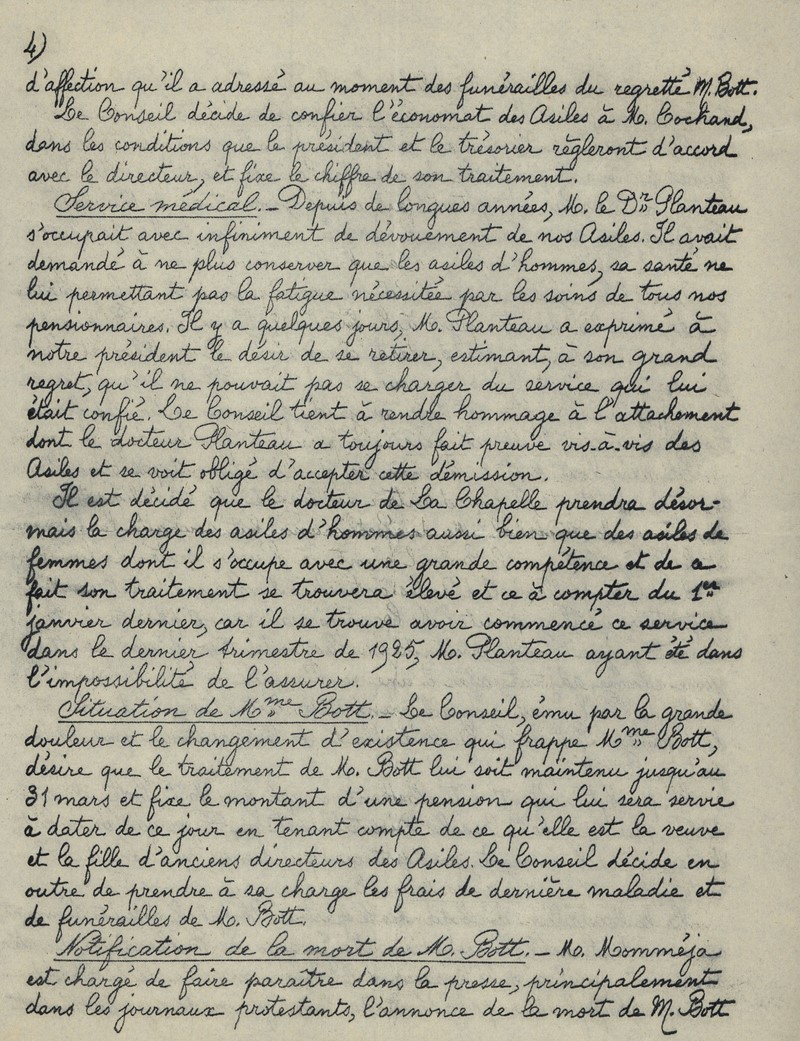 4)
d'affection qu'il a adressé au moment des funérailles du regretté M. Bott.
Le Conseil décide de confier l'économat des Asiles à M. Cochand,
dans les conditions que le président et le trésorier règleront d'accord
avec le directeur, et fixe le chiffre de son traitement.
Service médical. - Depuis de longues années, M. le Dr Planteau
s'occupait avec infiniment de dévouement de nos Asiles. Il avait
demandé à ne plus conserver que les asiles d'hommes, sa santé ne
lui permettant pas la fatigue nécessitée par les soins de tous nos
pensionnaires. Il y a quelques jours, M. Planteau a exprimé à
notre président le désir de se retirer, estimant, à son grand
regret, qu'il ne pouvait pas se charger du service qui lui
était confié. Le Conseil tient à rendre hommage à l'attachement
dont le docteur Planteau a toujours fait preuve vis-à-vis des
Asiles et se voit obligé d'accepter cette démission.
Il est décidé que le docteur de La Chapelle prendra désor-
mais la charge des asiles d'hommes aussi bien que des asiles de
femmes dont il s'occupe avec une grande compétence et de ce
fait son traitement se trouvera élevé et ce à compter du 1er
janvier dernier, car il se trouve avoir commencé ce service
dans le dernier trimestre de 1925, M. Planteau ayant été dans
l'impossibilité de l'assurer.
Situation de Mme Bott. - Le Conseil, ému par la grande
douleur et le changement d'existence qui frappe Mme Bott,
désire que le traitement de M. Bott lui soit maintenu jusqu'au
31 mars et fixe le montant d'une pension qui lui sera servie
à dater de ce jour en tenant compte de ce qu'elle est la veuve
et la fille d'anciens directeurs des Asiles. Le Conseil décide en
outre de prendre à sa charge les frais de dernière maladie et
de funérailles de M. Bott.
Notification de la mort de M. Bott. - M. Momméja
est chargé de faire paraître dans la presse, principalement
dans les journaux protestants, l'annonce de la mort de M. Bott